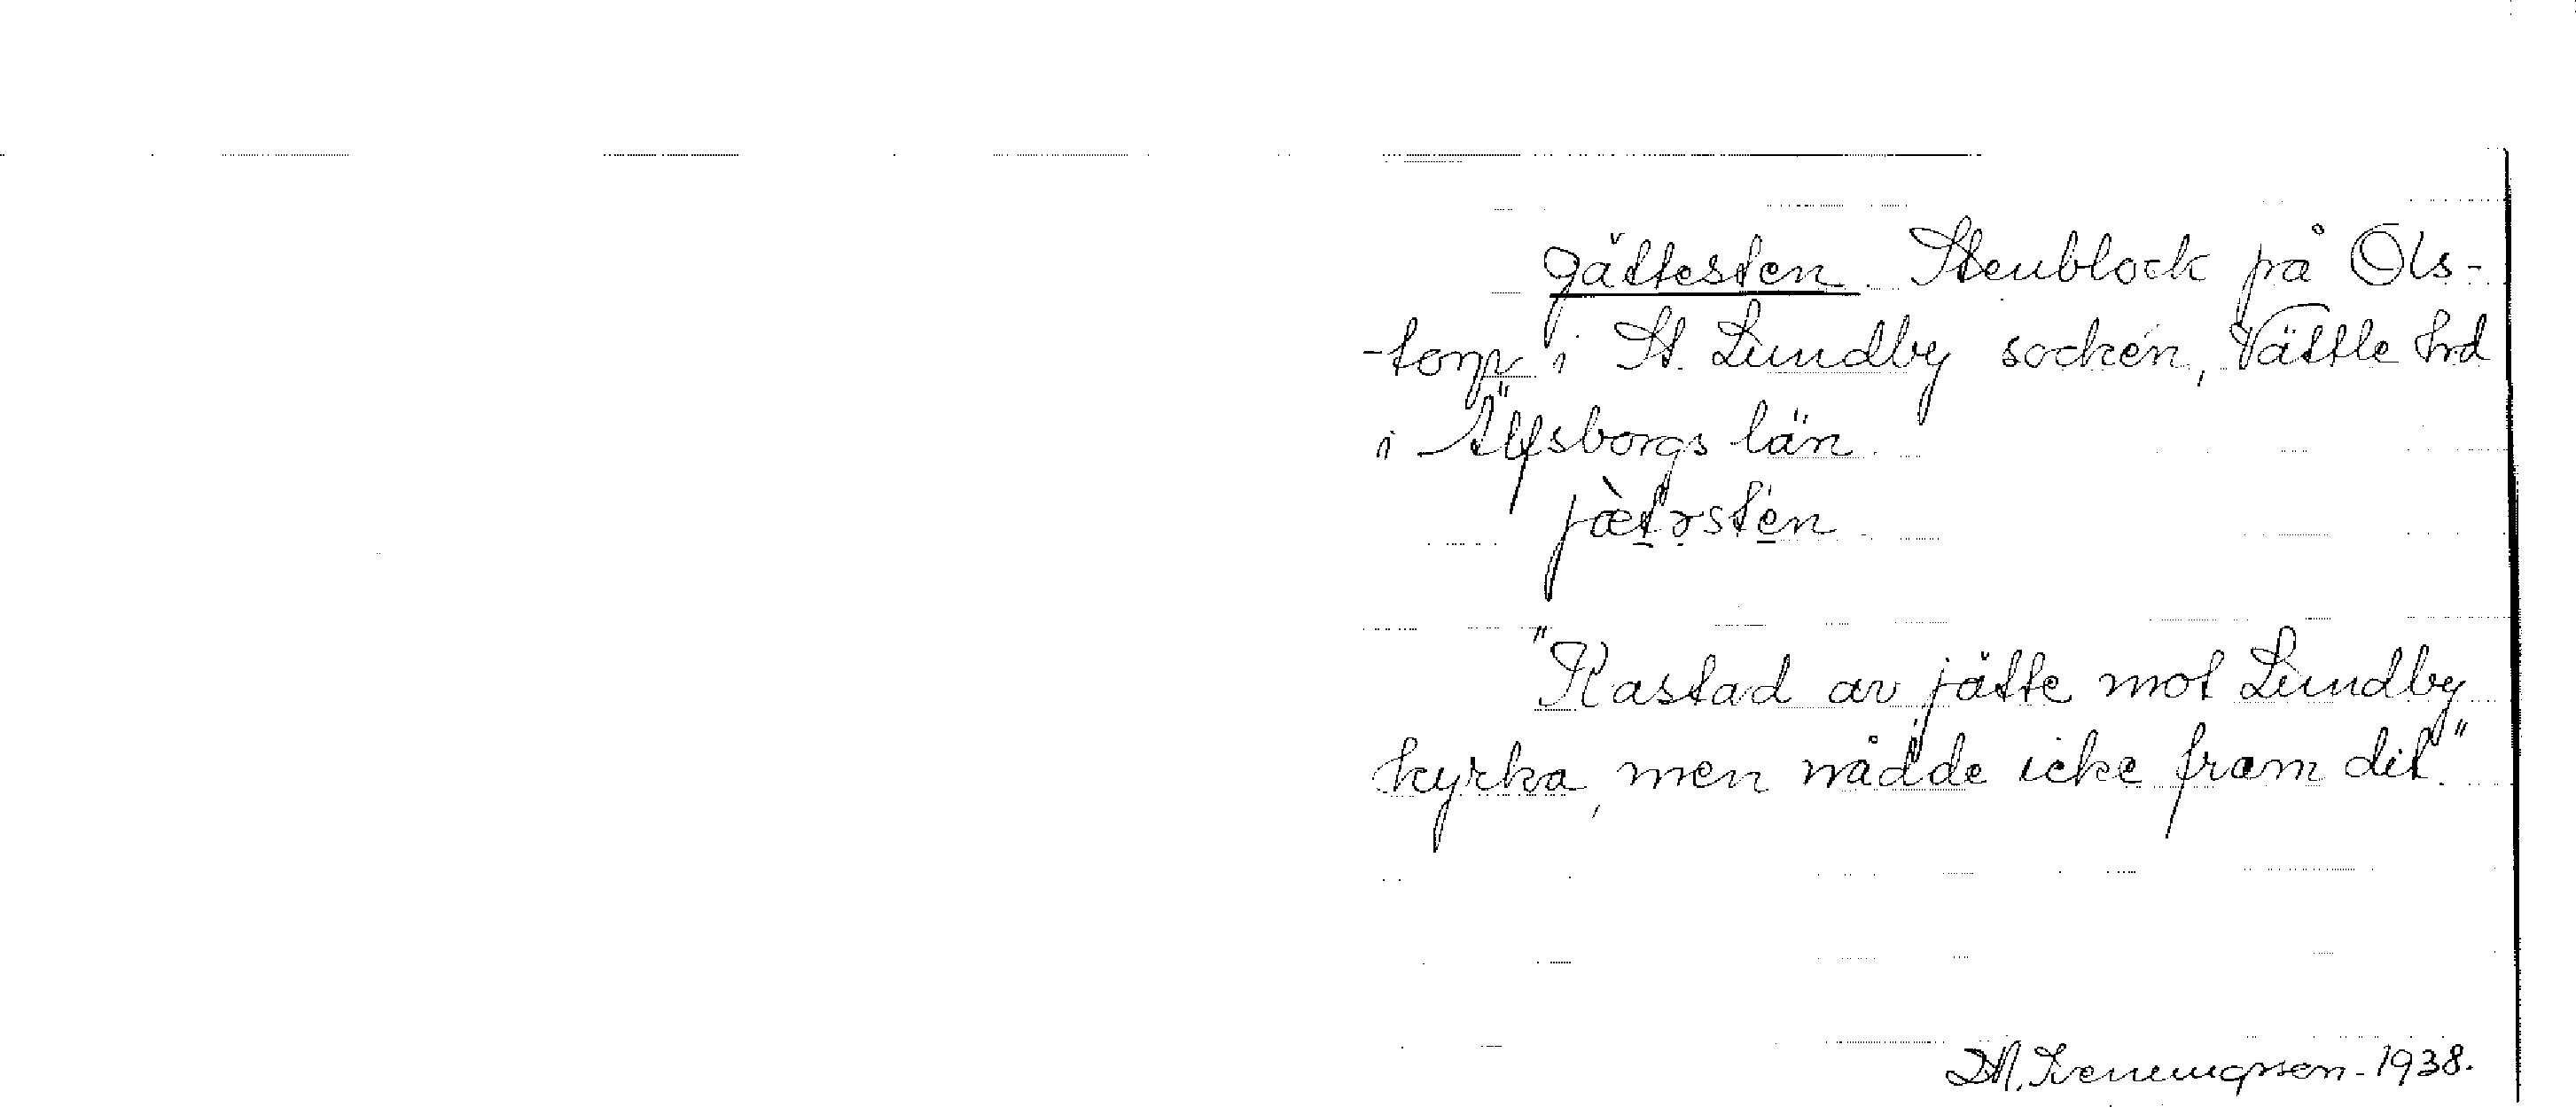 Jättesten. Stenblock på Ols-
-torp i St. Lundby socken, Vättle hrd
i Älfsborgs län.
jæ̀təstén
"Kastad av jätte mot Lundby
kyrka, men nådde icke fram dit."
1938.